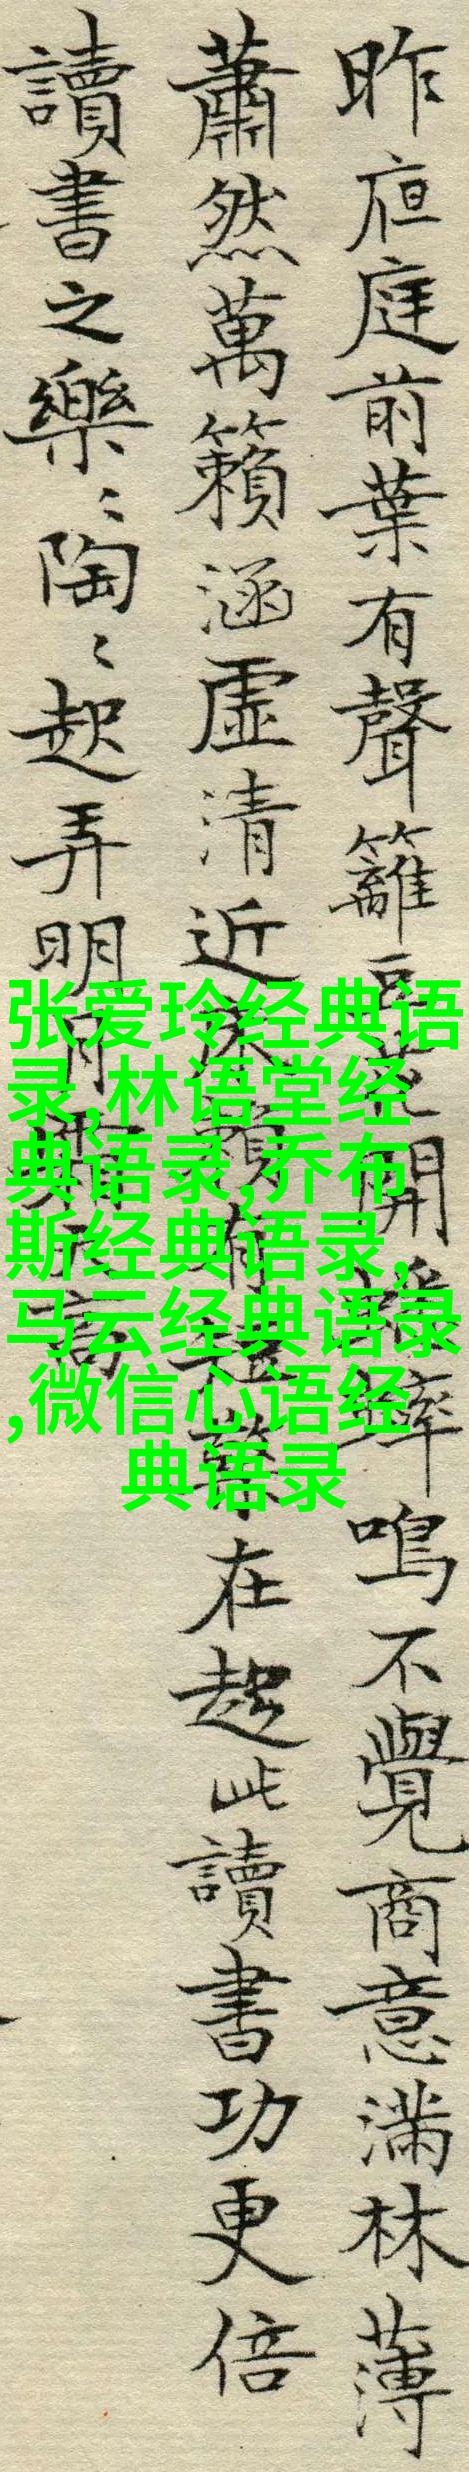 昨亱庭前葉有聲籬豆花開蟋蟀鳴不覺商意滿林薄
蕭然萬籟涵虛清近床賴有短檠在趂此讀書功更倍
讀書之樂〻陶〻起弄明月霜天高
张爱玲经典语
录,林语堂经
典语录,乔布
斯经典语录,
马云经典语录
,微信心语经
典语录